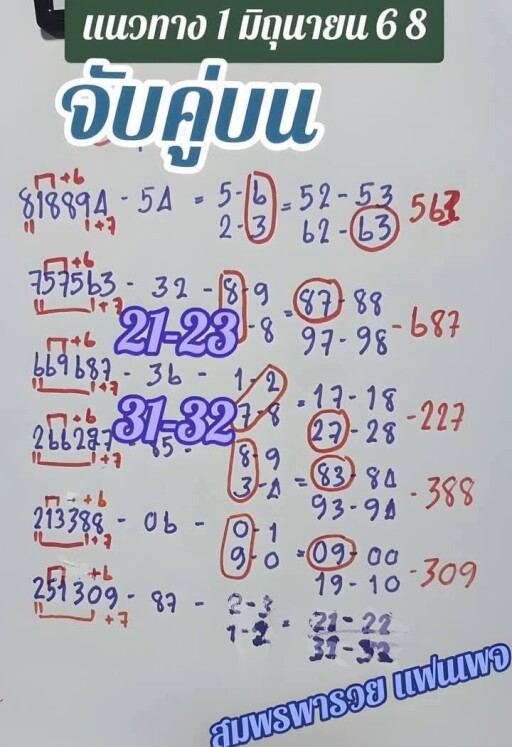 แนวทาง 1 มิถุนายน 68
จับคู่บน
+6
818894 - 54 = 5-6 = 52-53 563
+7 2-3 62-63
+6
757563 - 32 - 8-9 = 87-88 - 687
+7 -8 97-98
21-23
+6
669687 - 36 - 1-2 = 17-18 - 227
+7 7-8 27-28
31-32
+6
266287 - 85 - 8-9 = 83-84 - 388
+7 3-4 93-94
+6
213388 - 06 - 0-1 = 09-00 - 309
+7 9-0 19-10
+6
251309 - 87 - 2-3 = 21-22
+7 1-2 31-32
สมพรพารวย แฟนเพจ